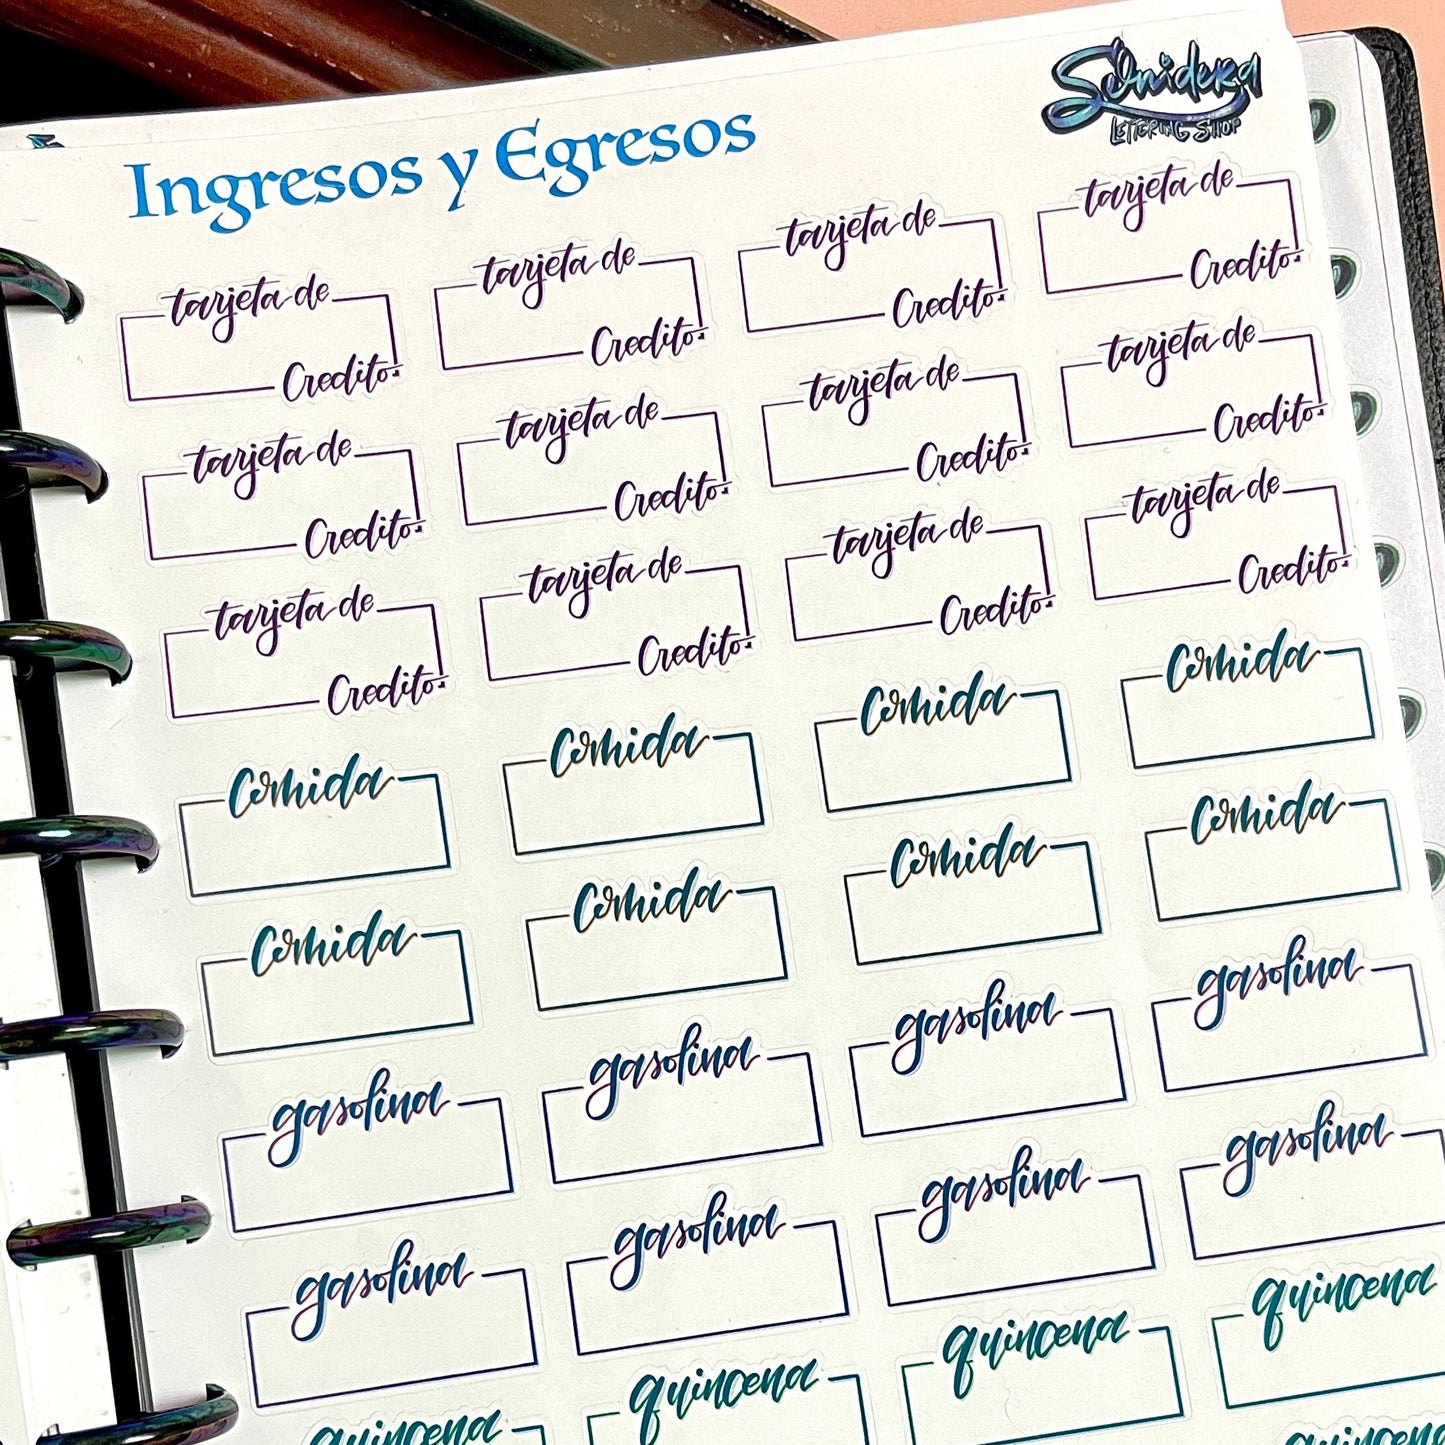 Ingresos y Egresos
Sonidera
Lettering Shop
tarjeta de tarjeta de tarjeta de tarjeta de
Credito: Credito: Credito: Credito:
tarjeta de tarjeta de tarjeta de tarjeta de
Credito: Credito: Credito: Credito:
tarjeta de tarjeta de tarjeta de tarjeta de
Credito: Credito: Credito: Credito:
comida comida comida comida
comida comida comida comida
gasolina gasolina gasolina gasolina
gasolina gasolina gasolina gasolina
quincena quincena quincena quincena
quincena